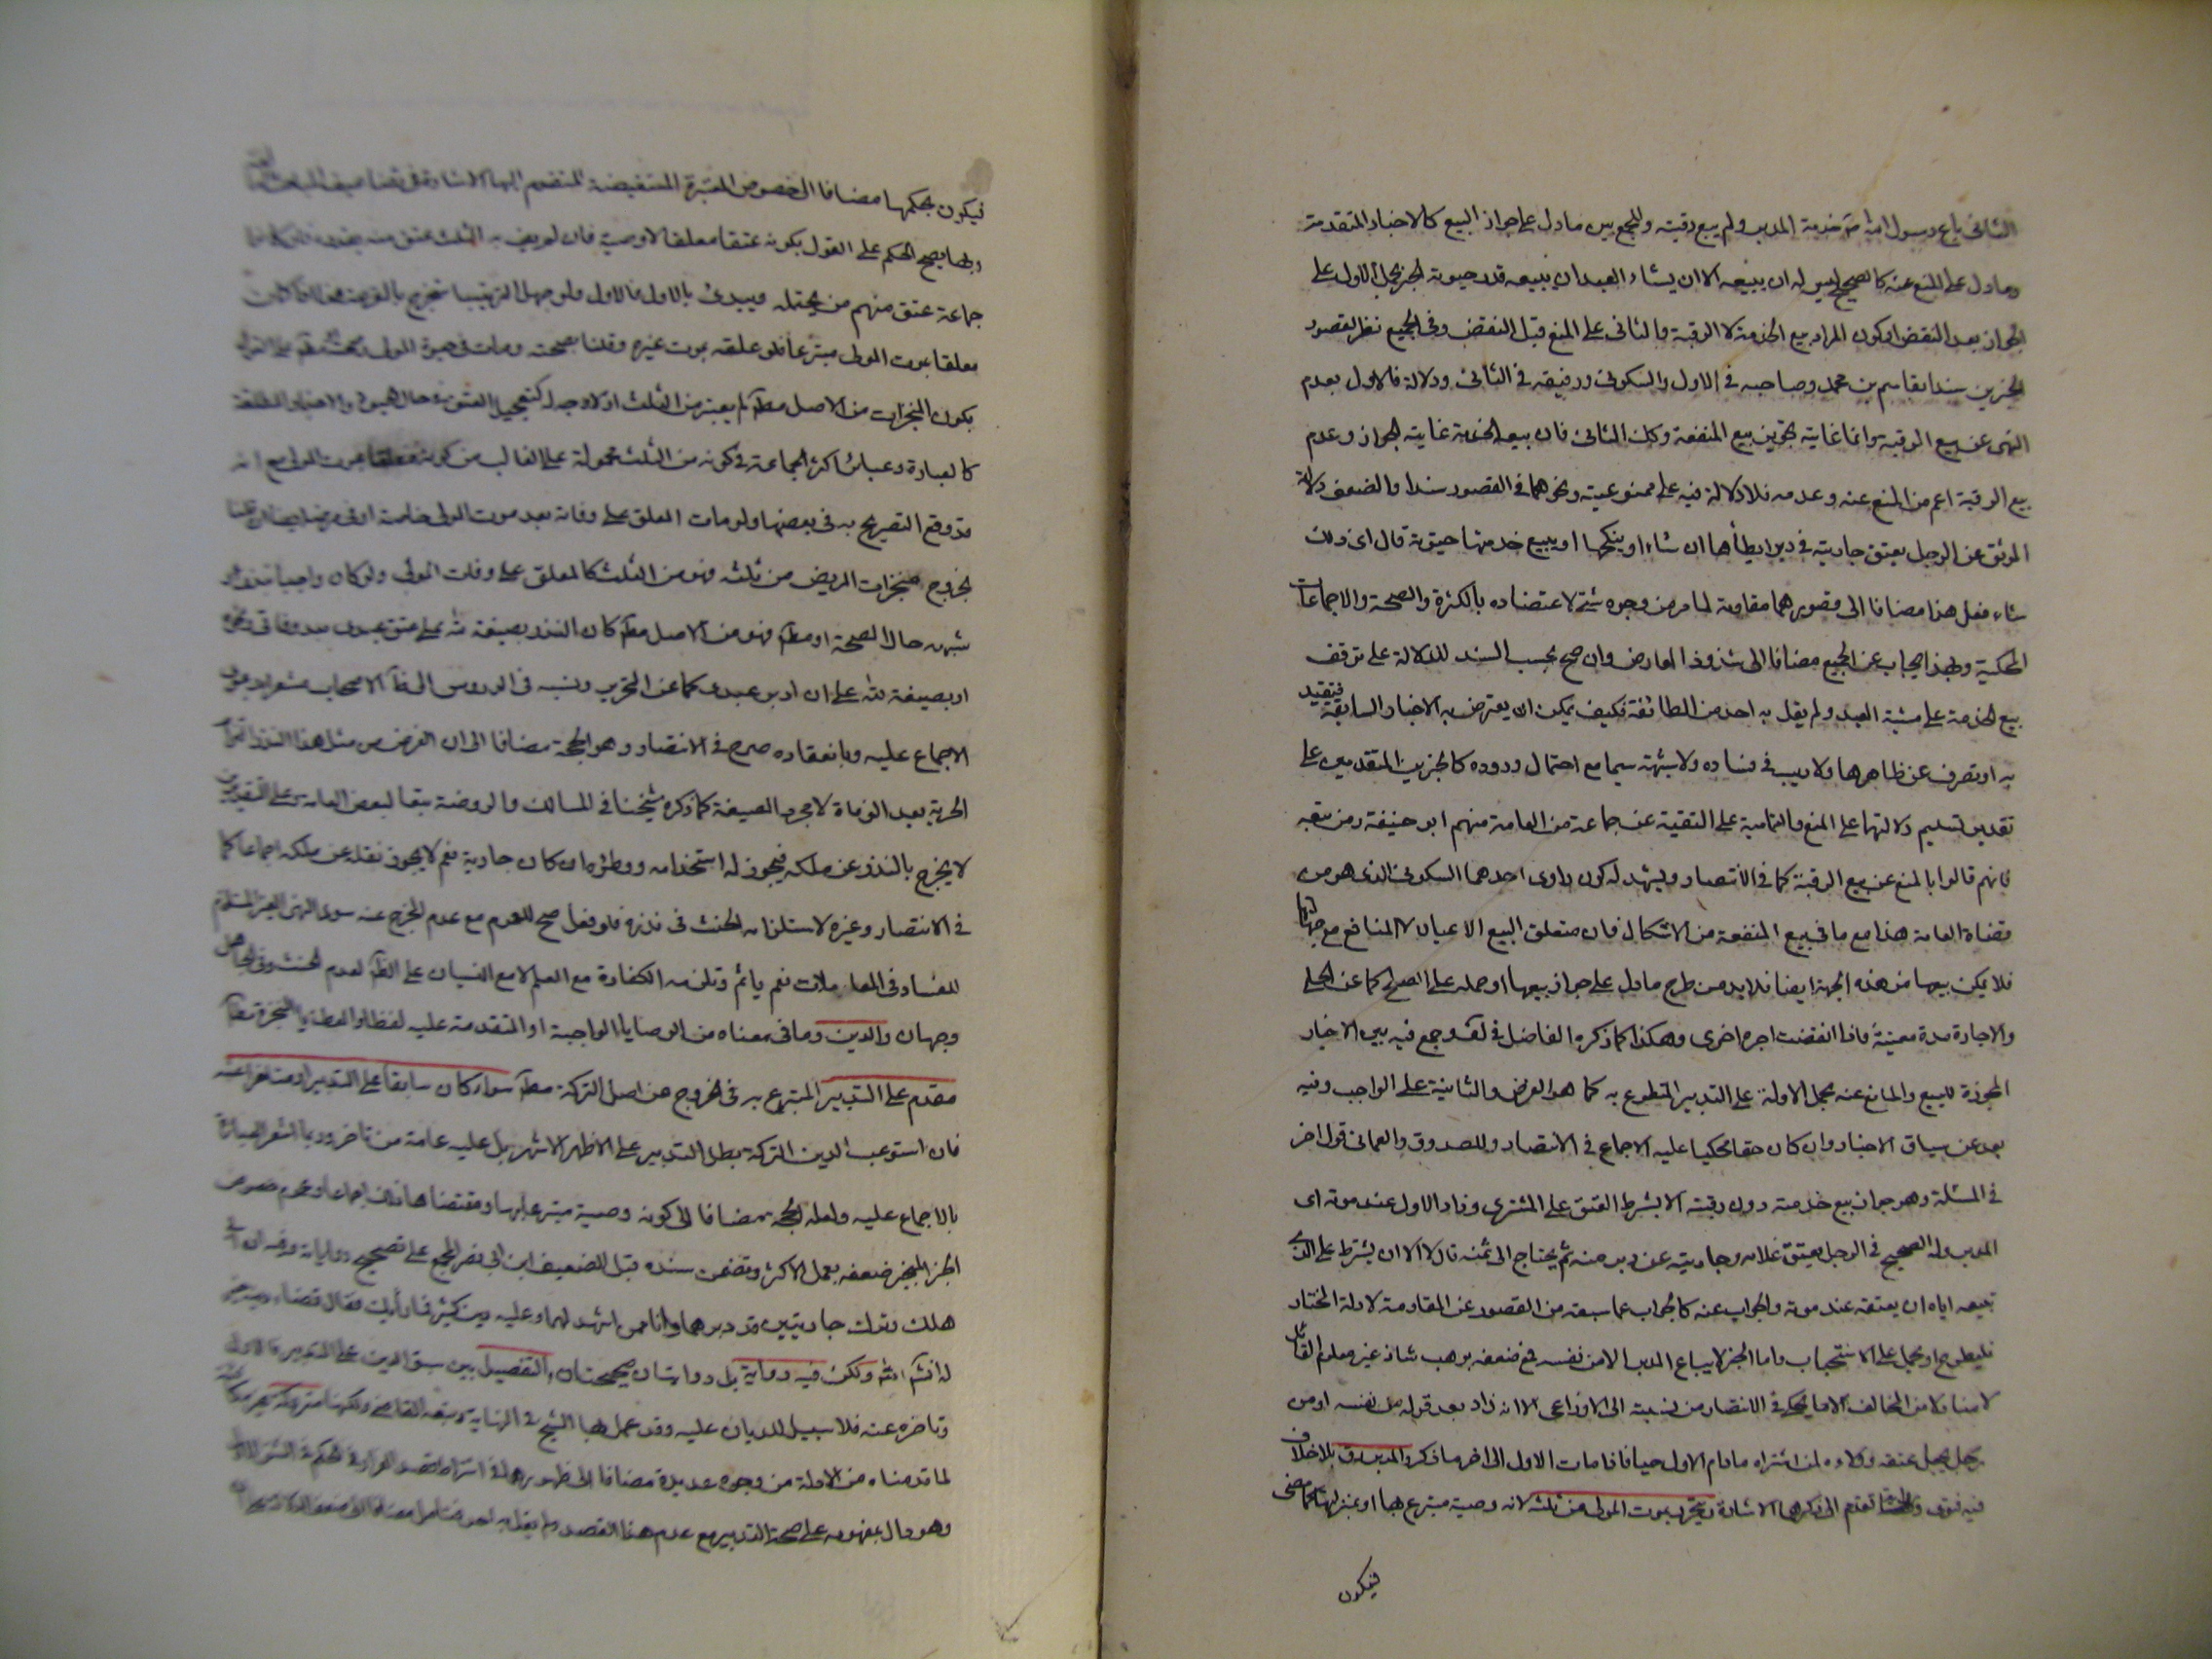 الثانى باع رسول الله ص خدمة المدبر ولم يبع رقبته وللجمع بين مادل على جواز البيع كالاخبار المتقدمة
ومادل على المنع عنه كالصحيح ليس له ان يبيعه الا ان يشاء العبد ان يبيعه قدر حيوته الخبر بحمل الاول على
الجواز بعد النقض او كون المراد بيع الخدمة لا الرقبة والثانى على المنع قبل النقض وفى الجميع نظر لقصور
الخبرين سندا بقاسم بن محمد وصاحبه فى الاول والسكونى ورفيقه فى الثانى ودلالة فالاول بعدم
النهى عن بيع الرقبة وانما غايته تجويز بيع المنفعة وكك الثانى فان بيع الخدمة غايته الجواز وعدم
بيع الرقبة اعم من المنع عنه وعدمه فلا دلالة فيه على ممنوعيته ونحوهما فى القصور سندا والضعف دلالة
الموثق عن الرجل يعتق جاريته فى دبر ايطأها ان شاء او ينكحها او يبيع خدمتها حيوته قال اى ذلك
شاء فعل هذا مضافا الى قصورهما مقاومة لما مر من وجوه شتى لاعتضاده بالكثرة والصحة والاجماعات
المحكية وبهذا يجاب عن الجميع مضافا الى شذوذ المعارض وان صح بحسب السند للدلالة على توقف
بيع الخدمة على مشية العبد ولم يقل به احد من الطائفة فكيف يمكن ان يعترض به الاخبار السابقة فيتقيد
به او تصرف عن ظاهرها ولا ريب فى فساده ولا شبهة سيما مع احتمال وروده كالخبرين المتقدمين على
تقدير تسليم دلالتهما على المنع والتمامية على التقية عن جماعة من العامة منهم ابو حنيفة ومن تبعه
فانهم قالوا بالمنع عن بيع الرقبة كما فى الانتصار ويشهد له كون راوى احدهما السكونى الذى هو من
قضاة العامة هذا مع ما فى بيع المنفعة من الاشكال فان متعلق البيع الاعيان لا المنافع مع جهالتها
فلا يمكن بيعها من هذه الجهة ايضا فلا بد من طرح مادل على جواز بيعها او حمله على الصلح كما عن الحلى
والاجارة مدة معينة فاذا انقضت اجره اخرى وهكذا كما ذكره الفاضل فى لف وجمع فيه بين الاخبار
المجوزة للبيع والمانع عنه بحمل الاولة على التدبير المتطوع به كما هو الفرض والثانية على الواجب وفيه
بعد عن سياق الاخبار وان كان حقا محكيا عليه الاجماع فى الانتصار وللصدوق والعمانى قول اخر
فى المسئلة وهو جواز بيع خدمته دون رقبته الا بشرط العتق على المشترى وزاد الاول عند موته اى
المدبر وله الصحيح فى الرجل يعتق غلامه وجاريته عن دبر منه ثم يحتاج الى ثمنه قال لا الا ان يشترط على الذى
يبيعه اياه ان يعتقه عند موته والجواب عنه كالجواب عما سبقه من القصور عن المقاومة لادلة المختار
فليطرح او يحمل على الاستحباب واما الخبر لا يباع المدبر الا من نفسه فمع ضعفه بوهب شاذ غير معلوم القائل
لا منا ولا من المخالف الا ما يحكى فى الانتصار من نسبته الى الاوزاعى الا انه زاد بعد قوله من نفسه او من
رجل يعجل عتقه وولاءه لمن اشتراه مادام الاول حيا فاذا مات الاول الى اخر ما ذكر والمدبر رق بلا خلاف
فيه فتوى تقدم الى ذكرها الاشارة يتحرر بموت المولى من ثلثه لانه وصية متبرع بها او بمنزلتها كما مضى
فيكون
فيكون بحكمها مضافا الى النصوص المعتبرة المستفيضة المتقدم اليها الاشارة فى
وبها يصح الحكم على القول بكونه عتقا معلقا لا وصية فان لم يف به الثلث عتق منه بقدره
جماعة عتق منهم من يحتمله ويبدئ بالاول فالاول ولو جهل الترتيب استخرج بالقرعة هذا اذا كان
معلقا بموت المولى متبرعا فلو علقه بموت غيره وقلنا بصحته ومات فى حيوة المولى
يكون المنجزات من الاصل مط لم يعتبر من الثلث اذ لا وجه له كتعجيل العتق فى حال الحيوة والاخبار المطلقة
كالعبارة وعبائر اكثر الجماعة فى كونه من الثلث محمولة على الغالب من كونه معلقا بموت المولى مع انه
قد وقع التصريح به فى بعضها ولو مات المعلق على وفاته بعد موت المولى خاصة او فى مرضه ايضا وقلنا
بخروج منجزات المريض من ثلثه فهو من الثلث كالمعلق على وفات المولى ولو كان واجبا بنذر او
شبهه حال الصحة او مط فهو من الاصل مط كان النذر بصيغة لله على عتق عبدى بعد وفاتى ونحوه
او بصيغة لله على ان ادبر عبدى كما عن التحرير ونسبه فى الدروس الى ظ الاصحاب مشعرا بدعوى
الاجماع عليه وبانعقاده صرح فى الانتصار وهو الحجة مضافا الى ان الغرض من مثل هذا النذر التزام
الحرية بعد الوفاة لا مجرد الصيغة كما ذكره شيخنا فى المسالك والروضة تبعا لبعض العامة وعلى التقديرين
لا يخرج بالنذر عن ملكه فيجوز له استخدامه ووطؤه ان كان جارية نعم لا يجوز نقله عن ملكه اجماعا كما
فى الانتصار وغيره لاستلزامه الحنث فى نذره فلو فعل صح للعموم مع عدم المخرج عنه سوى النهى الغير المستلزم
للفساد فى المعاملات نعم يأثم وتلزمه الكفارة مع العلم لا مع النسيان على الظ لعدم الحنث وفى الجاهل
وجهان والدين وما فى معناه من الوصايا الواجبة او المتقدمة عليه لفظا والعطايا المنجزة مط
مقدم على التدبير المتبرع به فى الخروج من اصل التركة مط سواء كان سابقا على التدبير او متاخرا عنه
فان استوعب الدين التركة بطل التدبير على الاظهر الاشهر بل عليه عامة من تاخر وربما اشعر العبارة
بالاجماع عليه ولعله الحجة مضافا الى كونه وصية متبرعا بها ومقتضاها ذلك اجماعا وعموم خصوص
الخبر المنجبر ضعفه بعمل الاكثر وتضمن سنده قبل الضعيف ابن ابى نصر المجمع على تصحيح رواياته وفيه ان ابى
هلك وترك جاريتين قد دبرهما وانا ممن اشهد لهما وعليه دين كثير فما رأيك فقال قضاء دينه خير
له انشاء الله ولكن فيه رواية بل روايتان صحيحتان بالتفصيل بين سبق الدين على التدبير فالاول
وتاخره عنه فلا سبيل للديان عليه وقد عمل بها الشيخ فى النهاية وتبعه القاضى ولكنها متروكة غير مكافئة
لما قدمناه من الادلة من وجوه عديدة مضافا الى ظهورهما فى اشتراط قصد الفرار فى الحكم فى الشق الاول
وهو دال بمفهومه على صحة التدبير مع عدم هذا القصد ولم يقل به احد